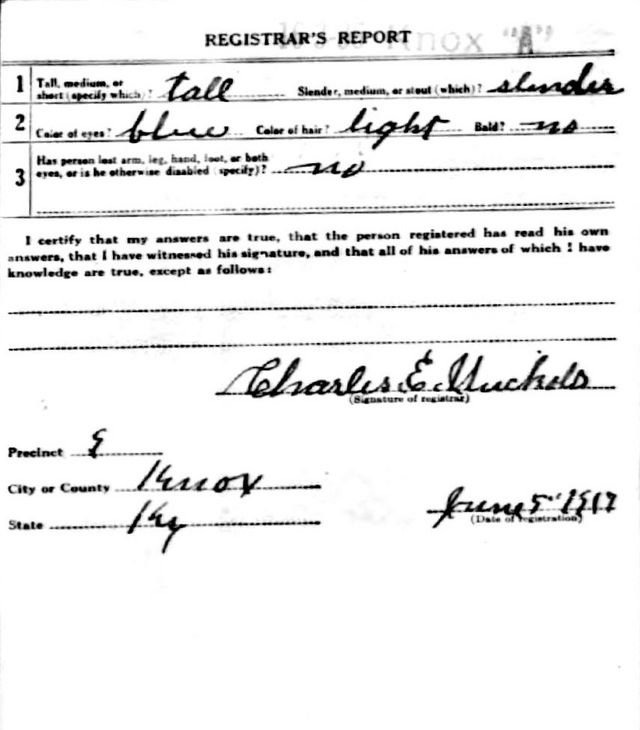 REGISTRAR'S REPORT
Knox "A"
1 Tall, medium, or short (specify which)? tall Slender, medium, or stout (which)? slender
2 Color of eyes? blue Color of hair? light Bald? no
3 Has person lost arm, leg, hand, foot, or both eyes, or is he otherwise disabled (specify)? no
I certify that my answers are true, that the person registered has read his own
answers, that I have witnessed his signature, and that all of his answers of which I have
knowledge are true, except as follows:
Charles E. Nuckols
(Signature of registrar)
Precinct
City or County Knox
State Ky
June 5" 1917
(Date of registration)